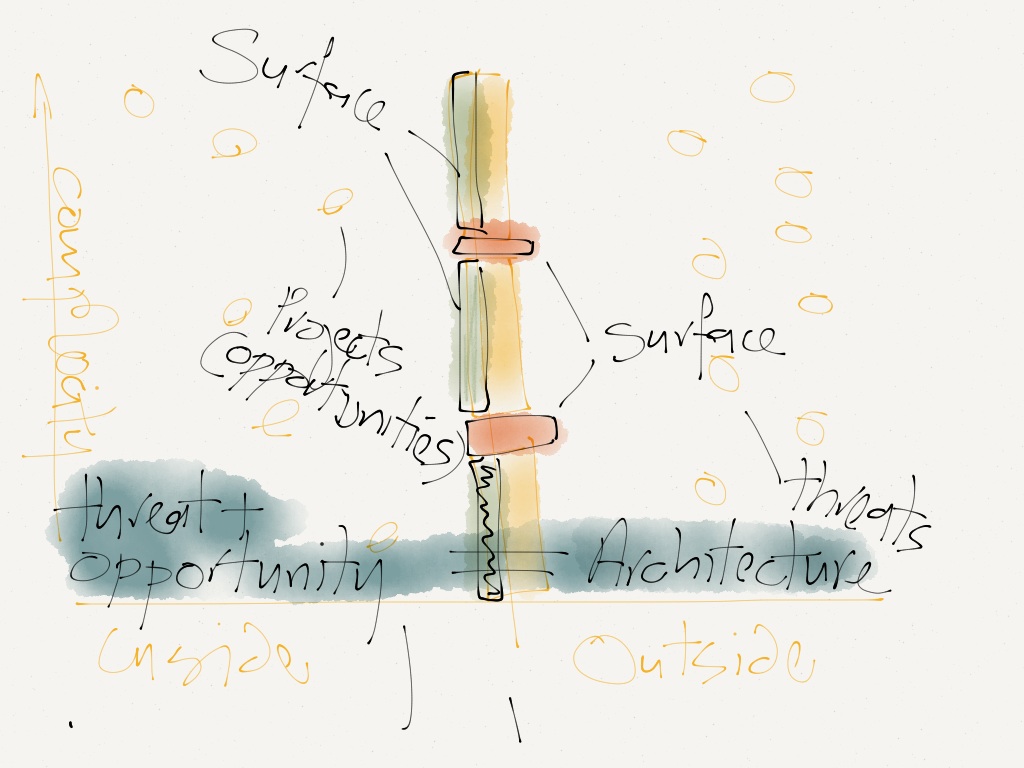 Surface
complexity
Projects
(opportunities)
Surface
threats
threat +
opportunity = Architecture
Inside
Outside